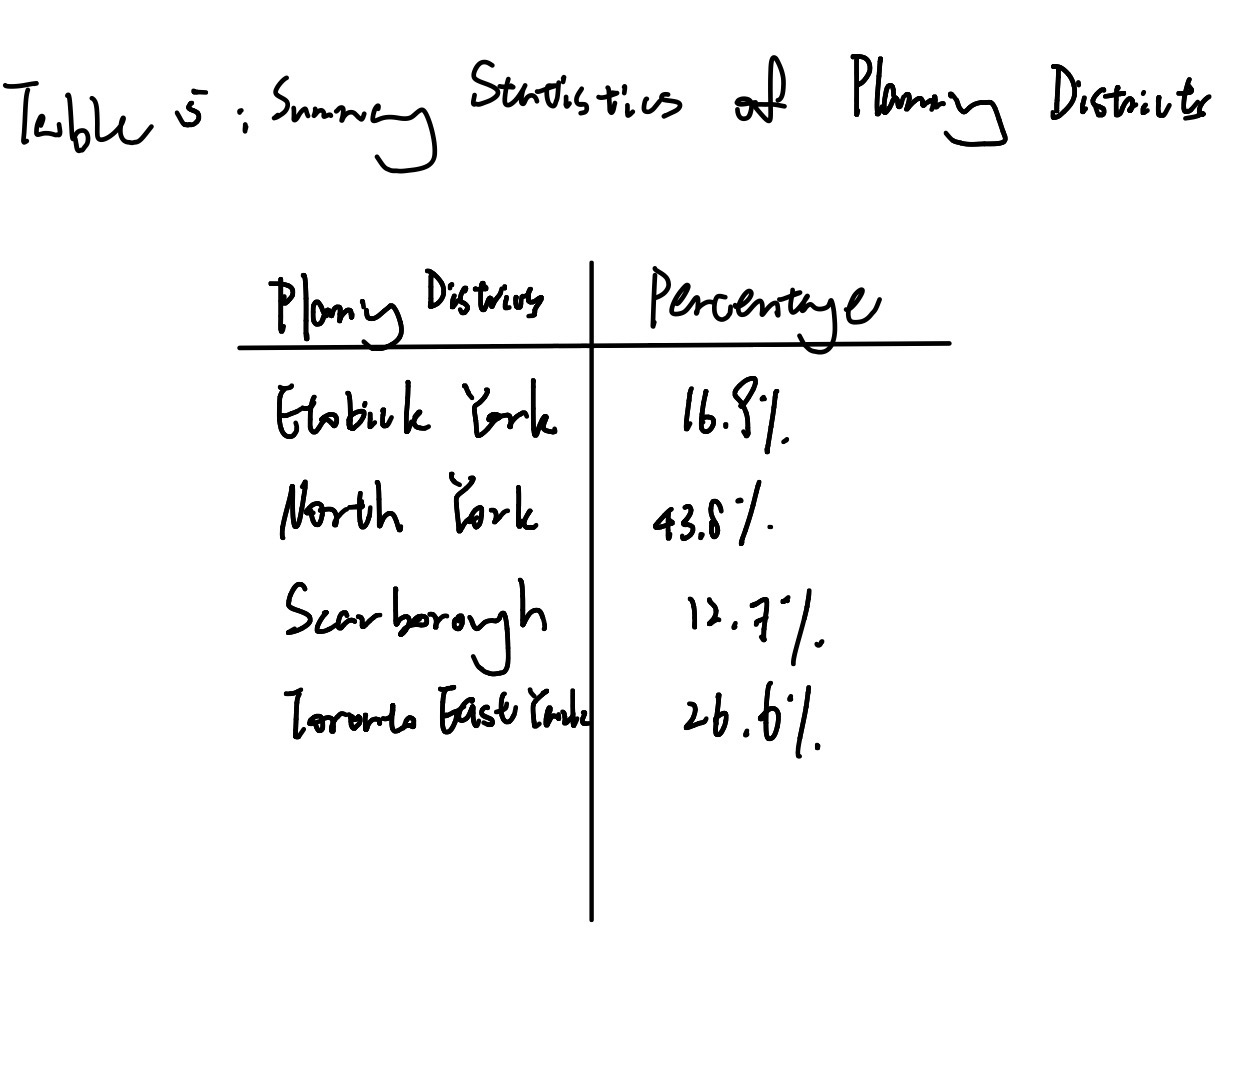 Table 5 : Summary Statistics of Planning Districts
Planning Districts Percentage
Etobicoke York 16.9%
North York 43.8%
Scarborough 12.7%
Toronto East York 26.6%